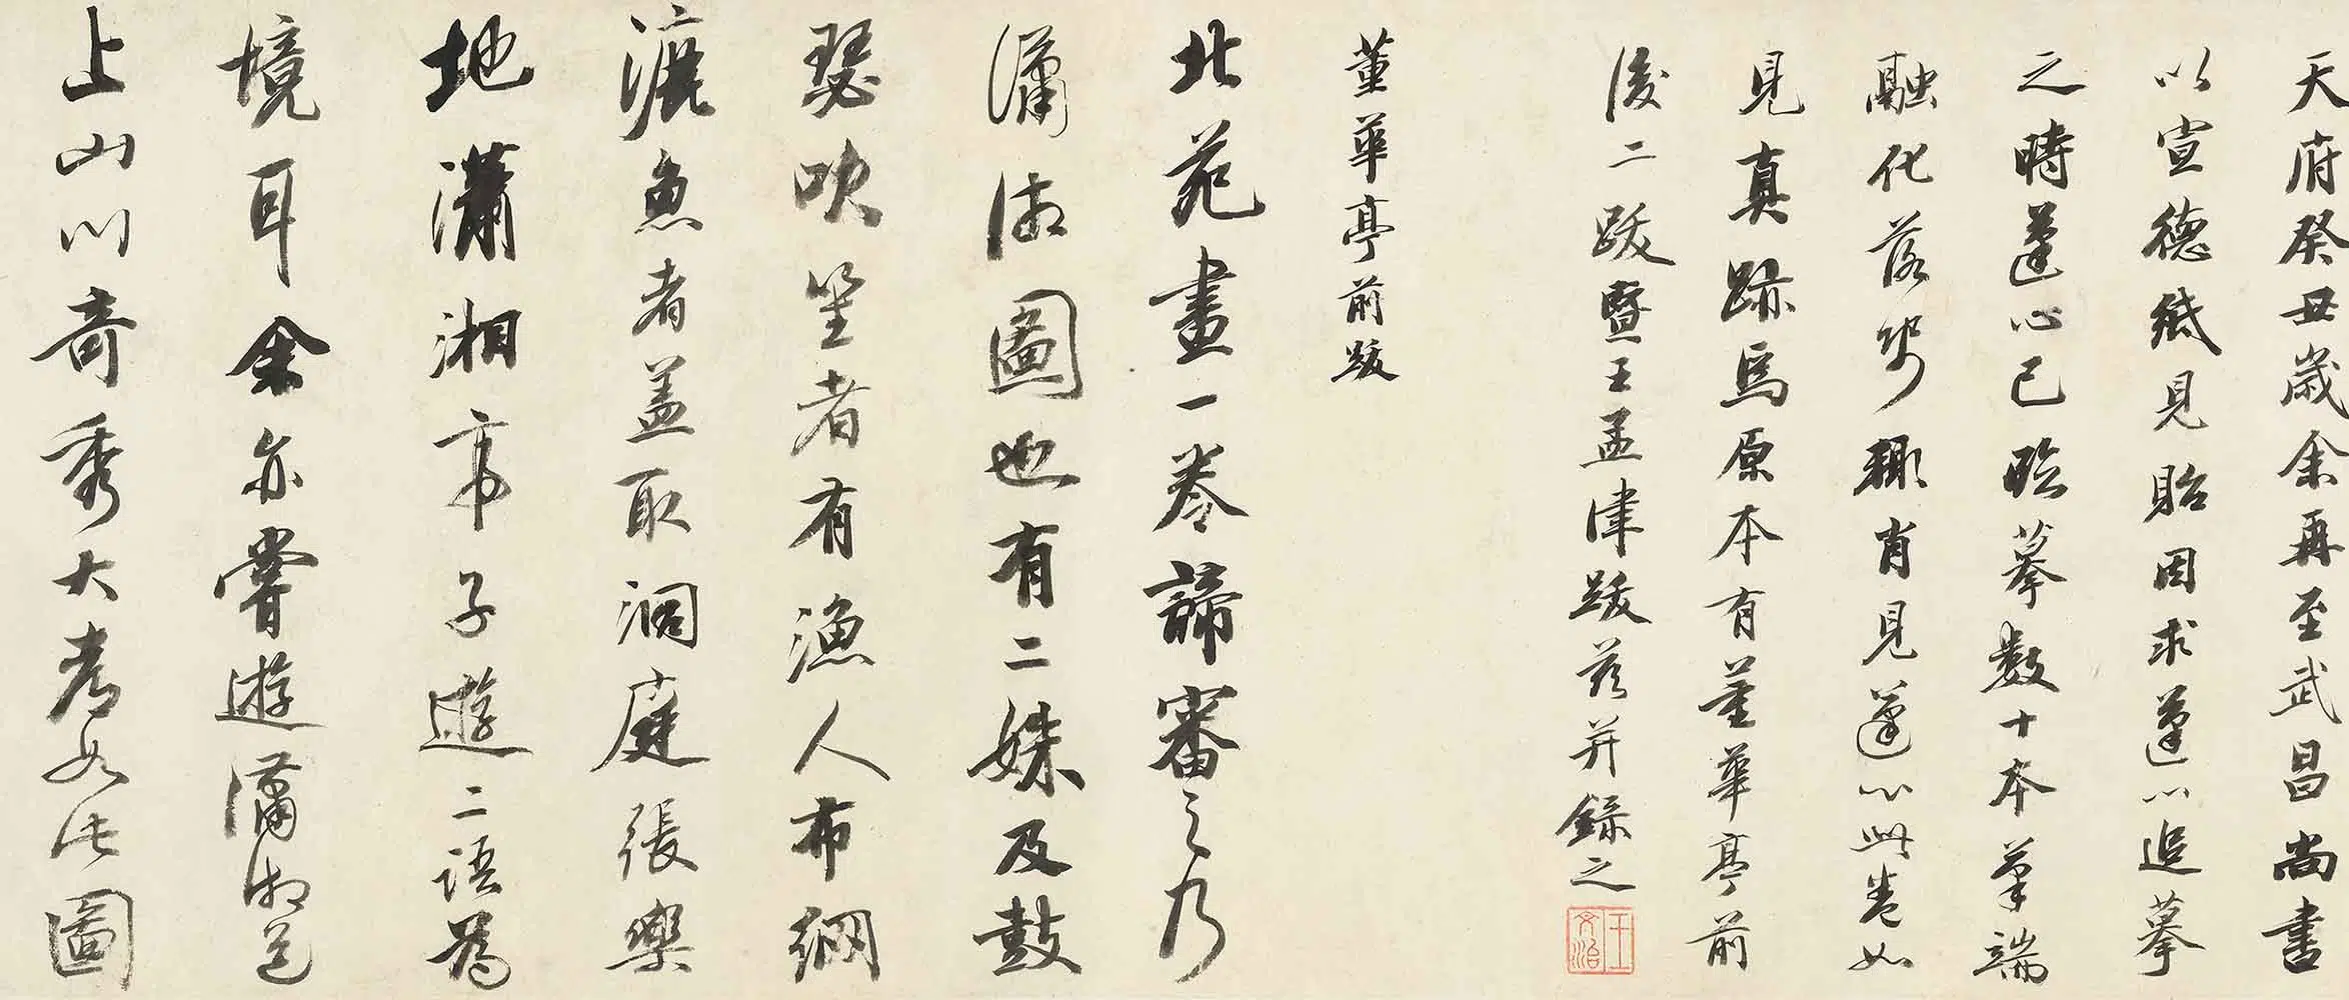 天府癸丑歲余再至武昌尚書
以宣德紙見貽因求蓬心追摹
之時蓬心已臨摹數十本筆端
融化落筆輒肖見蓬心此卷如
見真跡焉原本有董華亭前
後二跋暨王孟津跋茲并錄之
王文治
董華亭前跋
北苑畫一卷諦審之乃
瀟湘圖也有二姝及鼓
瑟吹笙者有漁人布網
漉魚者蓋取洞庭張樂
地瀟湘帝子遊二語為
境耳余亦嘗遊瀟湘道
上山川奇秀大都如此圖